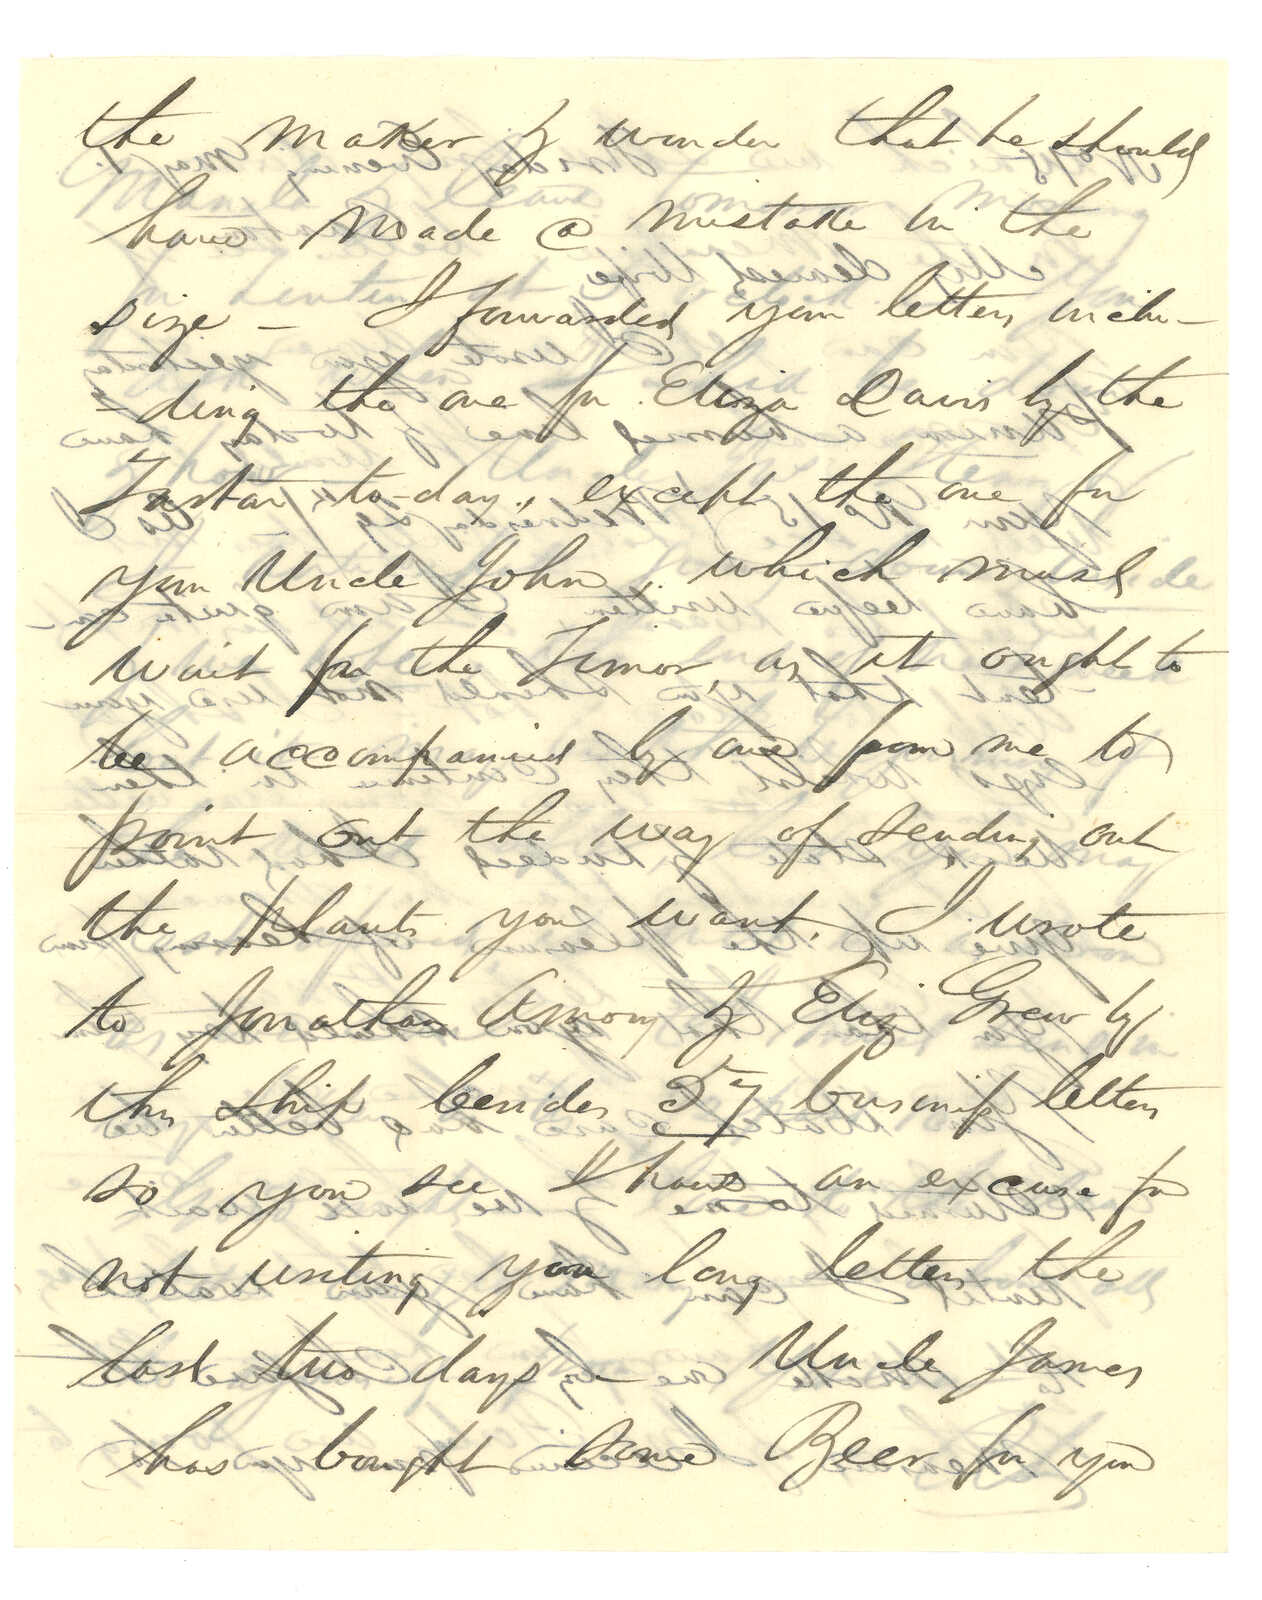 the maker & wonder that he should
have made a mistake in the
size – I forwarded your letters inclu-
-ding the one for Eliza Davis by the
Tartar to-day, except the one for
your Uncle John, which must
wait for the Timor, as it ought to
be accompanied by one from me to
point out the way of sending out
the plants you want. I wrote
to Jonathan Amory & Eliz Grew by
this ship besides 37 business letters
so you see I have an excuse for
not writing you long letters the
last two days – Uncle James
has bought some Beer for you